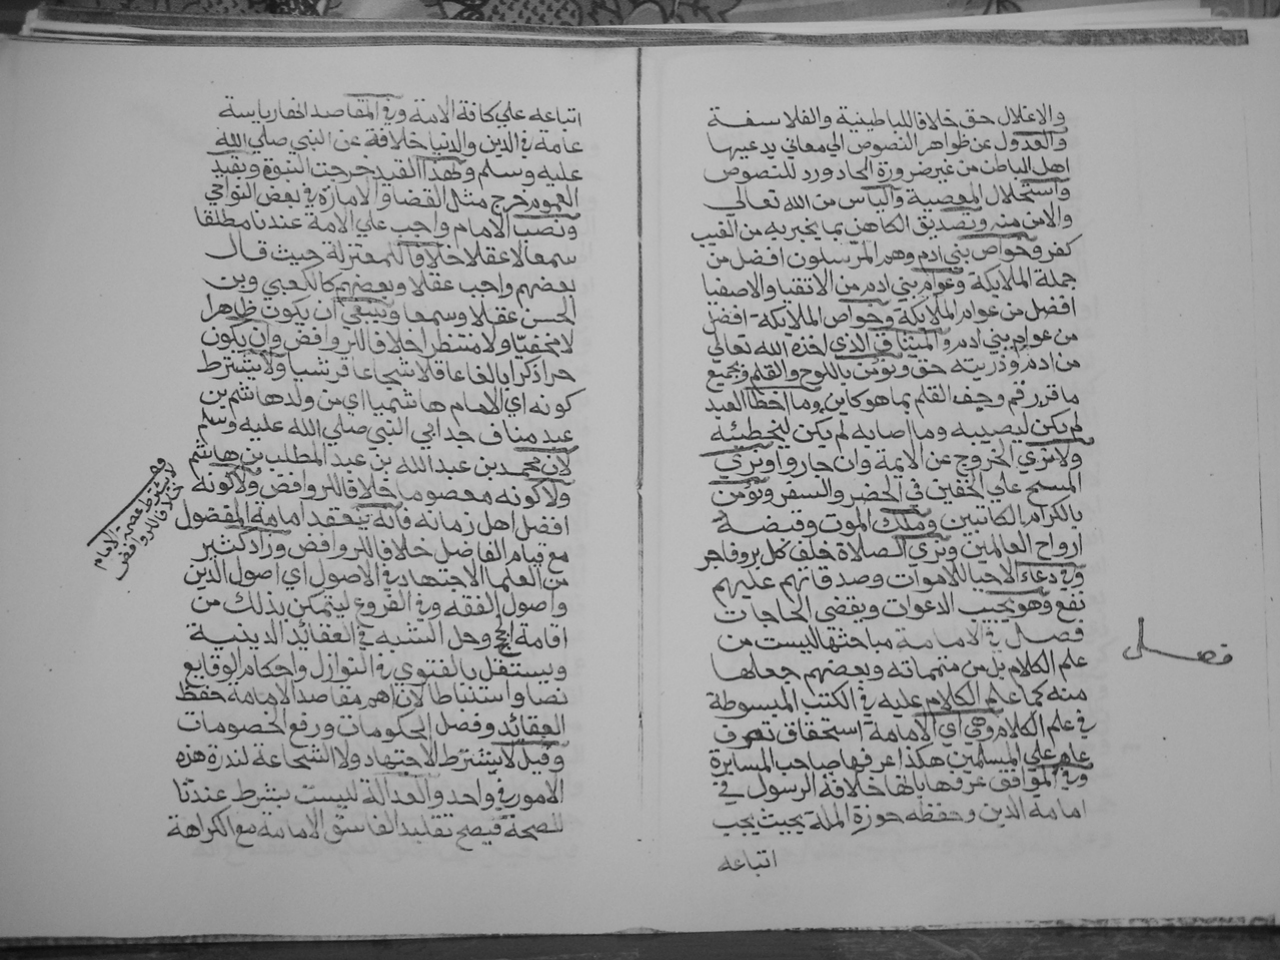 والاغلال حق خلافا للباطينية والفلاسفة
والعدول عن ظواهر النصوص الي معاني يدعيها
اهل الباطن من غير ضرورة الحاد ورد للنصوص
واستحلال المعصية والياس من الله تعالي
والامن منه وتصديق الكاهن بما يخبر به من الغيب
كفر وخواص بني ادم وهم المرسلون افضل من
جملة الملايكة وعوام بني ادم من الاتقيا والاصفيا
افضل من عوام الملايكة وخواص الملايكة افضل
من عوام بني ادم والميثاق الذي اخذه الله تعالي
من ادم وذريته حق ونؤمن باللوح والقلم وبجميع
ما قدر رقم وجف القلم بما هو كاين وما اخطا العبد
لم يكن ليصيبه وما اصابه لم يكن ليخطيئه
ولا نري الخروج عن الايمة وان جاروا ونري
المسح علي الخفين في الحضر والسفر ونؤمن
بالكرام الكاتبين وملك الموت وقبضه
ارواح العالمين ونري الصلاة خلف كل بر وفاجر
وفي دعاء الاحيا للاموات وصدقاتهم عليهم
نفع وهو يجيب الدعوات ويقضي الحاجات
فصل في الامامة مباحثها ليست من
علم الكلام بل من متمماته وبعضهم جعلها
منه كما علم الكلام عليه في الكتب المبسوطة
في علم الكلام وهي اي الامامة استحقاق تصرف
عام علي المسلمين هكذا عرفها صاحب المسايرة
وفي المواقف عرفها بانها خلافة الرسول في
امامة الدين وحفظه حوزة الملة بحيث يجب
اتباعه
فصل
اتباعه علي كافة الامة وفي المقاصد انها رياسة
عامة في الدين والدنيا خلافة عن النبي صلي الله
عليه وسلم ولهذا القيد خرجت النبوة وبقيد
العموم خرج مثل القضا والامارة في بعض النواحي
ونصب الامام واجب علي الامة عندنا مطلقا
سمعا لا عقلا خلافا للمعتزلة حيث قال
بعضهم واجب عقلا وبعضهم كالكعبي وبن
الحسن عقلا وسمعا وينبغي ان يكون ظاهرا
لا مختفيا ولا منتظرا خلافا للروافض وان يكون
حرا ذكرا بالغا عاقلا شجاعا قرشيا ولا يشترط
كونه اي الامام هاشميا اي من ولد هاشم بن
عبد مناف جد ابي النبي صلي الله عليه وسلم
لان محمد بن عبد الله بن عبد المطلب بن هاشم
ولا كونه معصوما خلافا للروافض ولا كونه
افضل اهل زمانه فانه ينعقد امامة المفضول
مع قيام الفاضل خلافا للروافض وزاد كثير
من العلما الاجتهاد في الاصول اي اصول الدين
واصول الفقه وفي الفروع ليتمكن بذلك من
اقامة الحج وحل الشبه في العقائد الدينية
ويستقل بالفتوي في النوازل واحكام الوقايع
نصا واستنباطا لان اهم مقاصد الامامة حفظ
العقائد وفصل الحكومات ورفع الخصومات
وقيل لا يشترط الاجتهاد ولا الشجاعة لندرة هذه
الامور في واحد والعدالة ليست بشرط عندنا
للصحة فيصح تقليد الفاسق الامامة مع الكراهة
لا يشترط عصمة الامام
خلافا للروافض